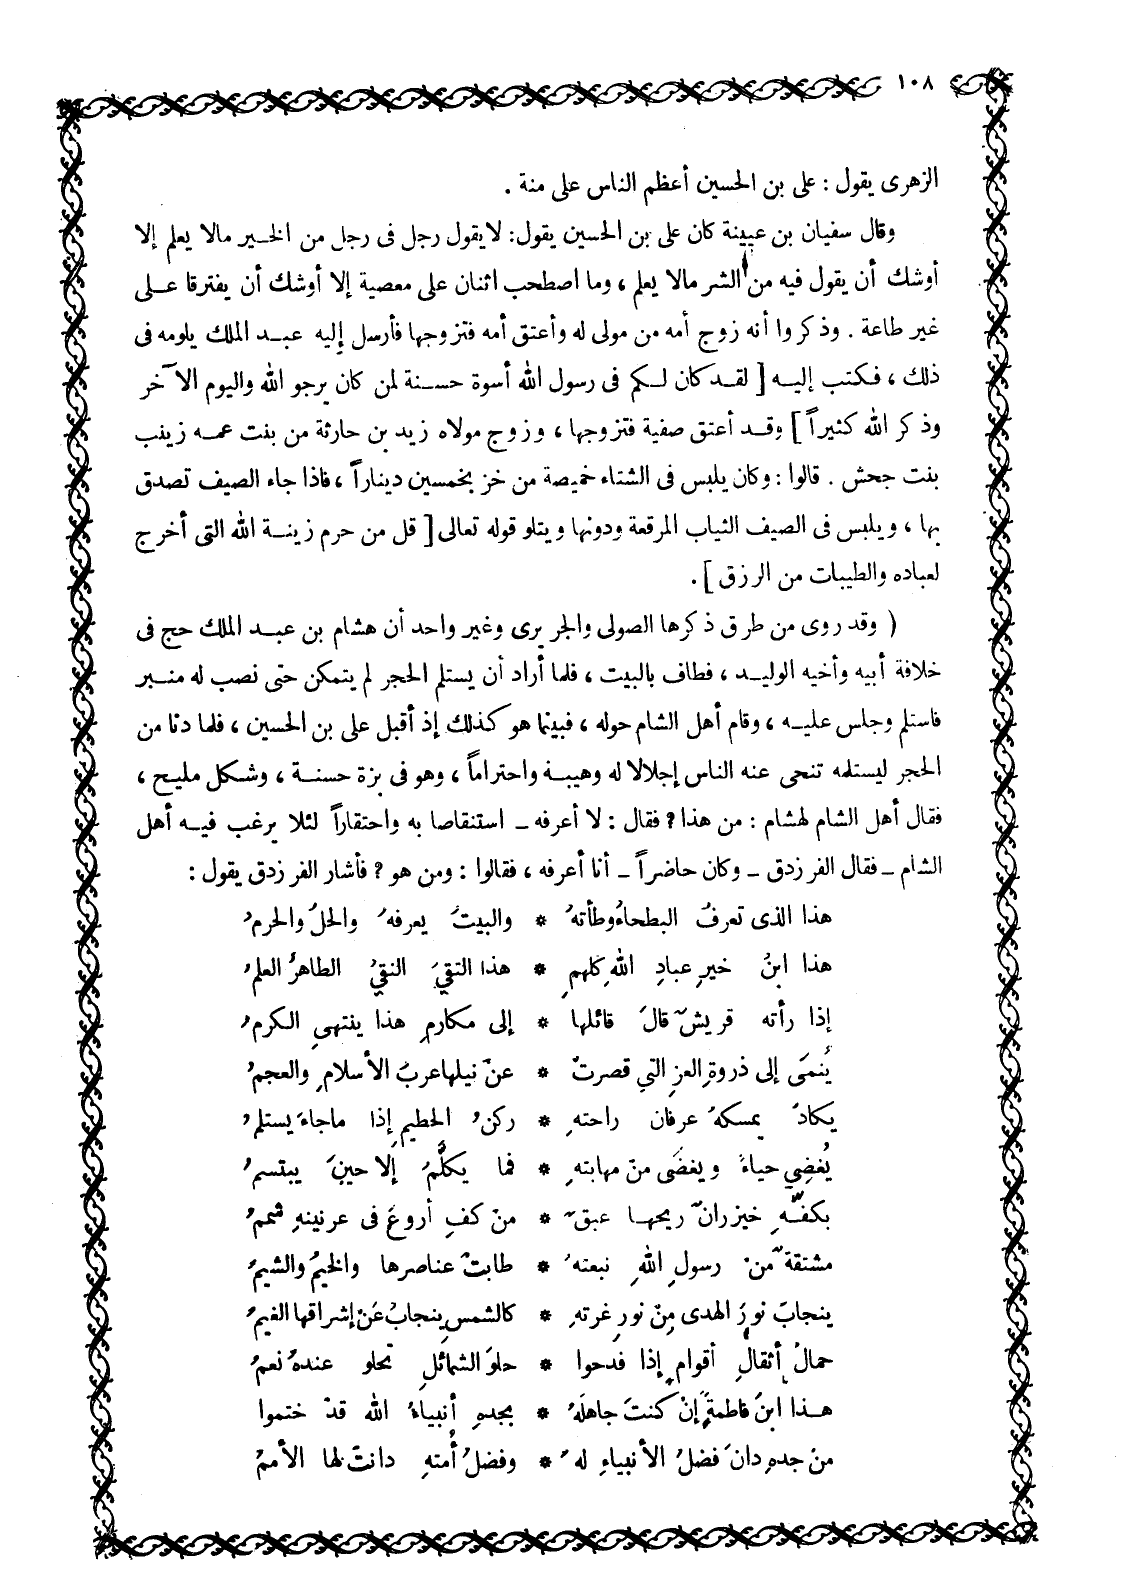 ١٠٨
الزهرى يقول : على بن الحسين أعظم الناس على منة .
وقال سفيان بن عيينة كان على بن الحسين يقول : لا يقول رجل فى رجل من الخير مالا يعلم إلا
أوشك أن يقول فيه من الشر مالا يعلم ، وما اصطحب اثنان على معصية إلا أوشك أن يفترقا على
غير طاعة . وذكروا أنه زوج أمه من مولى له وأعتق أمه فتزوجها فأرسل إليه عبد الملك يلومه فى
ذلك ، فكتب إليه [ لقد كان لكم فى رسول الله أسوة حسنة لمن كان يرجو الله واليوم الآخر
وذكر الله كثيراً ] وقد أعتق صفية فتزوجها ، وزوج مولاه زيد بن حارثة من بنت عمه زينب
بنت جحش . قالوا : وكان يلبس فى الشتاء خميصة من خز بخمسين ديناراً ، فاذا جاء الصيف تصدق
بها ، ويلبس فى الصيف الثياب المرقعة ودونها ويتلو قوله تعالى [ قل من حرم زينة الله التى أخرج
لعباده والطيبات من الرزق ] .
( وقد روى من طرق ذكرها الصولى والجريرى وغير واحد أن هشام بن عبد الملك حج فى
خلافة أبيه وأخيه الوليد ، فطاف بالبيت ، فلما أراد أن يستلم الحجر لم يتمكن حتى نصب له منبر
فاستلم وجلس عليه ، وقام أهل الشام حوله ، فبينما هو كذلك إذ أقبل على بن الحسين ، فلما دنا من
الحجر ليستلمه تنحى عنه الناس إجلالا له وهيبة واحتراماً ، وهو فى بزة حسنة ، وشكل مليح ،
فقال أهل الشام لهشام : من هذا ؟ فقال : لا أعرفه ــ استنقاصا به واحتقاراً لئلا يرغب فيه أهل
الشام ــ فقال الفرزدق ــ وكان حاضراً ــ أنا أعرفه ، فقالوا : ومن هو ؟ فأشار الفرزدق يقول :
هذا الذى تعرفُ البطحاءُ وطأتهُ * والبيتُ يعرفهُ والحلُ والحرمُ
هذا ابنُ خيرِ عبادِ اللهِ كلهمِ * هذا التقىَ النقيُ الطاهرُ العلمُ
إذا رأته قريشٌ قالَ قائلها * إلى مكارمِ هذا ينتهىِ الكرمُ
يُنمَى إلى ذروةِ العزِ التي قصرتْ * عنْ نيلها عربُ الأسلامِ والعجمُ
يكادُ يمسكهُ عرفان راحتهِ * ركنُ الحطيمِ إذا ماجاءَ يستلمُ
يُغضِي حياءً ويغضَى منْ مهابتهِ * فما يكلَّمُ إلا حينَ يبتسمُ
بكفّهِ خيزرانٌ ريحها عبقٌ * منْ كفِ أروعَ فى عرنينهِ شممُ
مشتقةٌ منْ رسولِ اللهِ نبعتهُ * طابتْ عناصرها والخيمُ والشيمُ
ينجابُ نورَ الهدى مِنْ نورِ غرتهِ * كالشمسِ ينجابُ عَنْ إشراقها الغيمُ
حمالُ أثقالِ أقوامٍ إذا فدحوا * حلوُ الشمائلِ تحلو عندهُ نعمُ
هذا ابنُ فاطمةٍ إنْ كنتَ جاهلَهُ * بجدهِ أنبياءُ الله قدْ ختموا
منْ جدهِ دانَ فضلُ الأنبياءِ لهُ * وفضلُ أُمتهِ دانتْ لها الأممُ